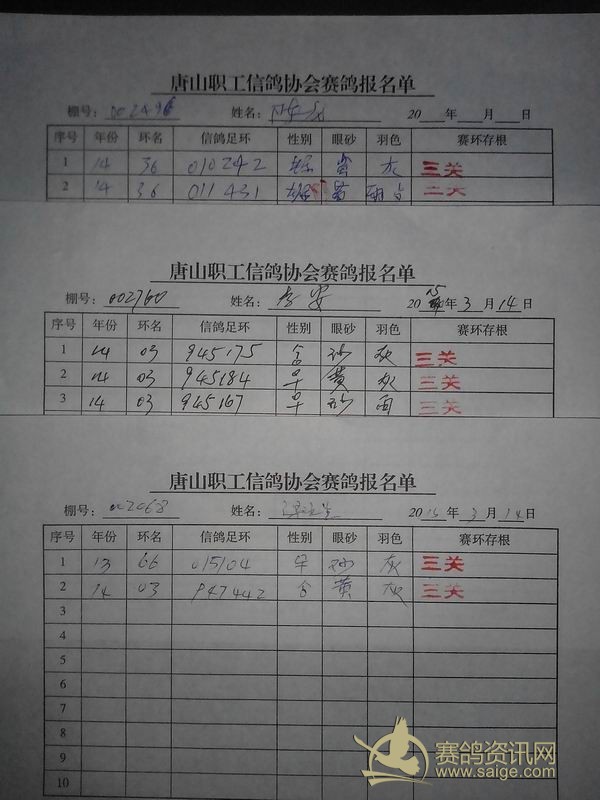 唐山职工信鸽协会赛鸽报名单
棚号: 姓名: 20 年 月 日
序号 年份 环名 信鸽足环 性别 眼砂 羽色 赛环存根
1 14 36 010242 黄 灰 三关
2 14 36 011431 黄 三关
唐山职工信鸽协会赛鸽报名单
棚号: 002760 姓名: 李安 2015年3月14日
序号 年份 环名 信鸽足环 性别 眼砂 羽色 赛环存根
1 14 03 945175 合 砂 灰 三关
2 14 03 945184 早 黄 灰 三关
3 14 03 945167 早 砂 三关
唐山职工信鸽协会赛鸽报名单
棚号: 002068 姓名: 2015年3月14日
序号 年份 环名 信鸽足环 性别 眼砂 羽色 赛环存根
1 13 66 015104 早 砂 灰 三关
2 14 03 947442 合 黄 灰 三关
3
4
5
6
7
8
9
10
赛鸽资讯网
www.saige.com